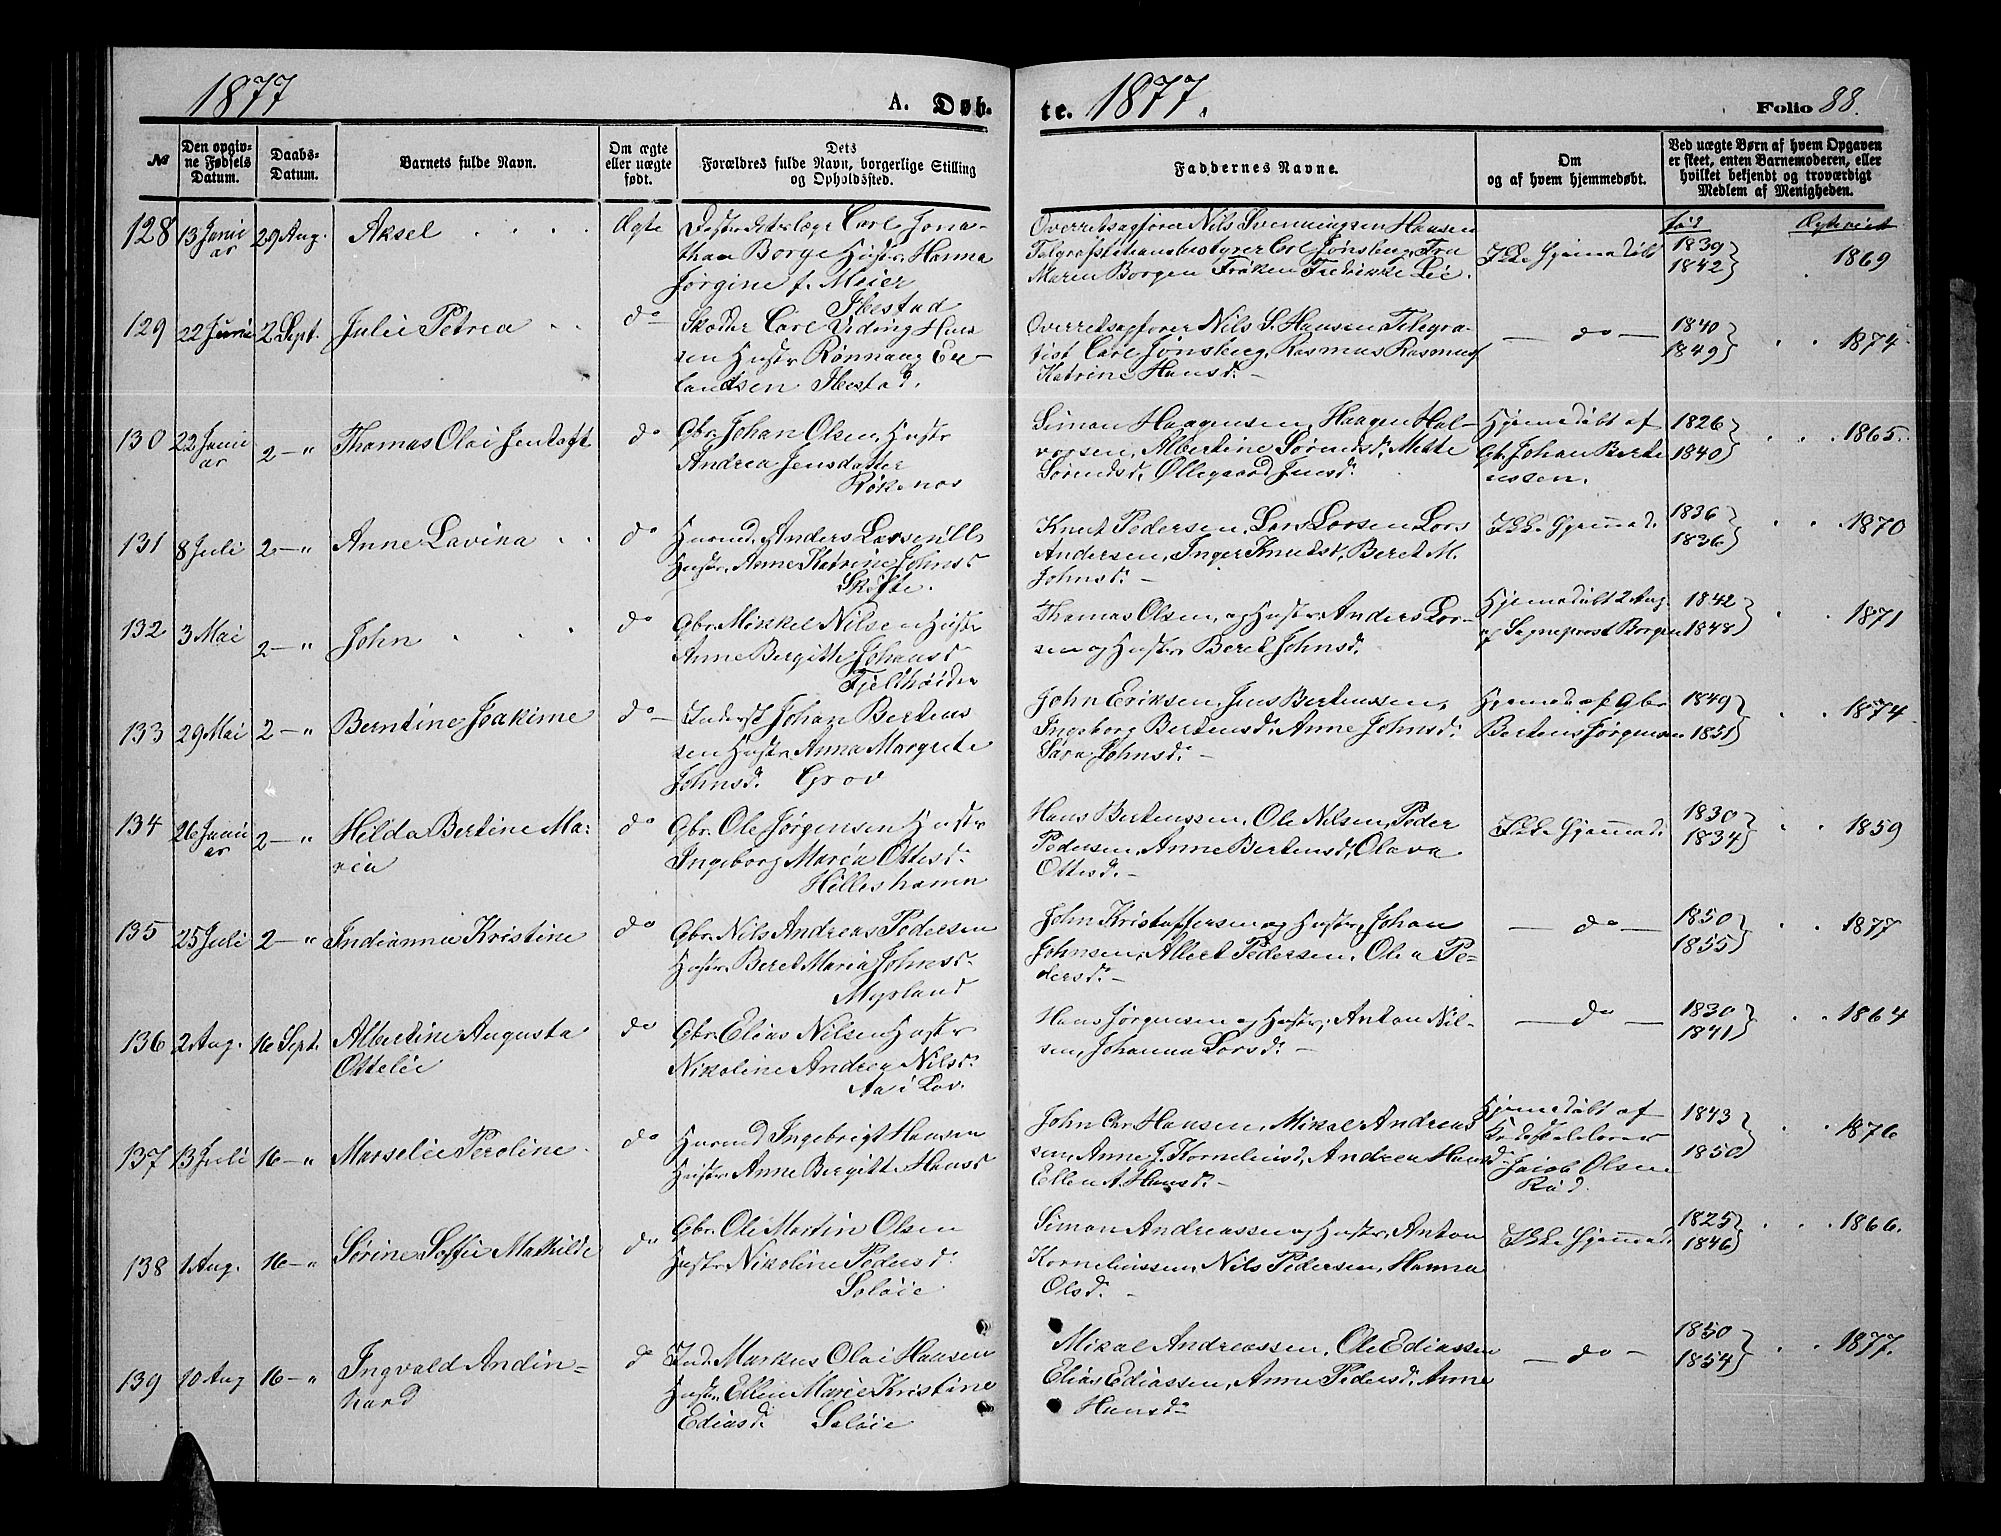 1877
A. Døb-
te. 1877.
Folio 88.
№
Den opgiv-
ne Fødsels
Datum.
Daabs-
Datum.
Barnets fulde Navn.
Om ægte
eller uægte
født.
Dets
Forældres fulde Navn, borgerlige Stilling
og Opholdssted.
Faddernes Navne.
Om
og af hvem hjemmedøbt.
Ved uægte Børn af hvem Opgaven
er skeet, enten Barnemoderen, eller
hvilket bekjendt og troværdigt
Medlem af Menigheden.
født
128 13 Januar 29 Aug. Aksel Ægte
Carl Jona-
than Borge Hustr. Hanna
Jørgine f. Meier
Ibestad
Overretsagfører Nils Svenningsen Hansen
Telgrafstationsbestyrer Carl Jønsberg, Fru
Maren Borgen Frøken Fredrikke Lie.
Ikke Hjemmedøbt
1839
1842
1869
129 22 Juni 2 Sept. Julie Petrea do
Carl Viding Han
sen Hustr. Rønnaug Er-
landsen Ibestad.
Overretsagfører Nils S. Hansen Telegra-
fist Carl Jønsberg, Rasmus Rasmus
Katrine Hansd.
do
1840
1849
1874
130 22 Januar 2 - " Thomas Olai Jentoft do
Gbr. Johan Olsen, Hustr
Andrea Jensdatter
Røkenes
Simon Haagensen, Haagen Hal-
vorsen, Albertine Sørensd., Mette
Sørensd., Ollegaard Jensd.
Hjemmedøbt af
Gb. Johan Berte
ussen.
1826
1840
1865.
131 8 Juli 2 - " Anne Lavina do
Husmd. Anders Larsen
Hustr. Anne Katrine Johnsd
Skøfte.
Knut Pedersen, Lars Larsen Lars
Andersen, Inger Knudsd., Beret M.
Johnsd.
Ikke Hjemmed.
1836
1836
1870
132 3 Mai 2 - " John do
Gbr. Mikkel Nilsen Hustr
Anne Bergitte Johansd
Thomas Olsen, og Hustr, Anders Lar-
sen og Hustr. Beret Johnsd.
Hjemmedøbt 2 Aug.
af Sogneprest Borgen
1842
1848
1871
133 29 Mai 2 - " Berntine Joakime do
Inderst Johan Berteus
sen Hustr. Anna Margrete
Johnsd. Grov
John Eriksen, Jens Berteussen,
Ingeborg Berteusd., Anne Johnsd.
Sara Johnsd.
Hjemmed. af Gbr
Berteus Jørgensen
1849
1851
1874
134 26 Januar 2 - " Hilda Bertine Ma-
ria
do
Gbr. Ole Jørgensen Hustr
Ingeborg Maria Ottesd.
Hilleshamn
Hans Berteussen, Ole Nilsen, Peder
Pedersen, Anne Berteusd., Olava
Ottesd.
Ikke Hjemmed.
1830
1834
1859
135 25 Juli 2 - " Indianna Kristine do
Gbr. Nils Andreas Pedersen
Hustr. Beret Maria Johnsd.
Myrland
John Kristoffersen og Hustr, Johan
Johnsen, Albert Pedersen, Olea Pe-
dersd.
do
1850
1855
1877
136 2 Aug. 16 Sept. Albertine Augusta
Ottelie
do
Gbr. Elias Nilsen Hustr
Nikoline Andrea Nilsd.
Aa i Lav.
Hans Jørgensen og Hustr, Anton Nil-
sen, Johanna Larsd.
do
1830
1841
1864
137 13 Juli 16 - " Marselie Peroline do
Husmd Ingebrigt Hansen
Hustr. Anne Bergitte Hansd
John Chr Hansen, Mikal Andreas
sen, Anne J. Kornelinsd, Andrea Hansd
Ellen A. Hansd.
Hjemmedøbt af
Jakob Olsen
Rød.
1843
1850
1876
138 1 Aug. 16 - " Sørine Soffie Mathilde do
Gbr. Ole Martin Olsen
Hustr. Nikoline Pedersd.
Seløie
Simon Andreassen og Hustr, Anton
Korneliussen, Nils Pedersen, Hanna
Olsd.
Ikke Hjemmed.
1825
1846
1866.
139 10 Aug 16 - " Ingvald Andin-
hard
do
Ind. Markus Olai Hansen
Hustr. Ellen Marie Kristine
Ediasd. Seløie
Mikal Andreassen, Ole Ediassen
Elias Ediassen, Anne Pedersd. Anne
Hansd.
do
1850
1854
1877.